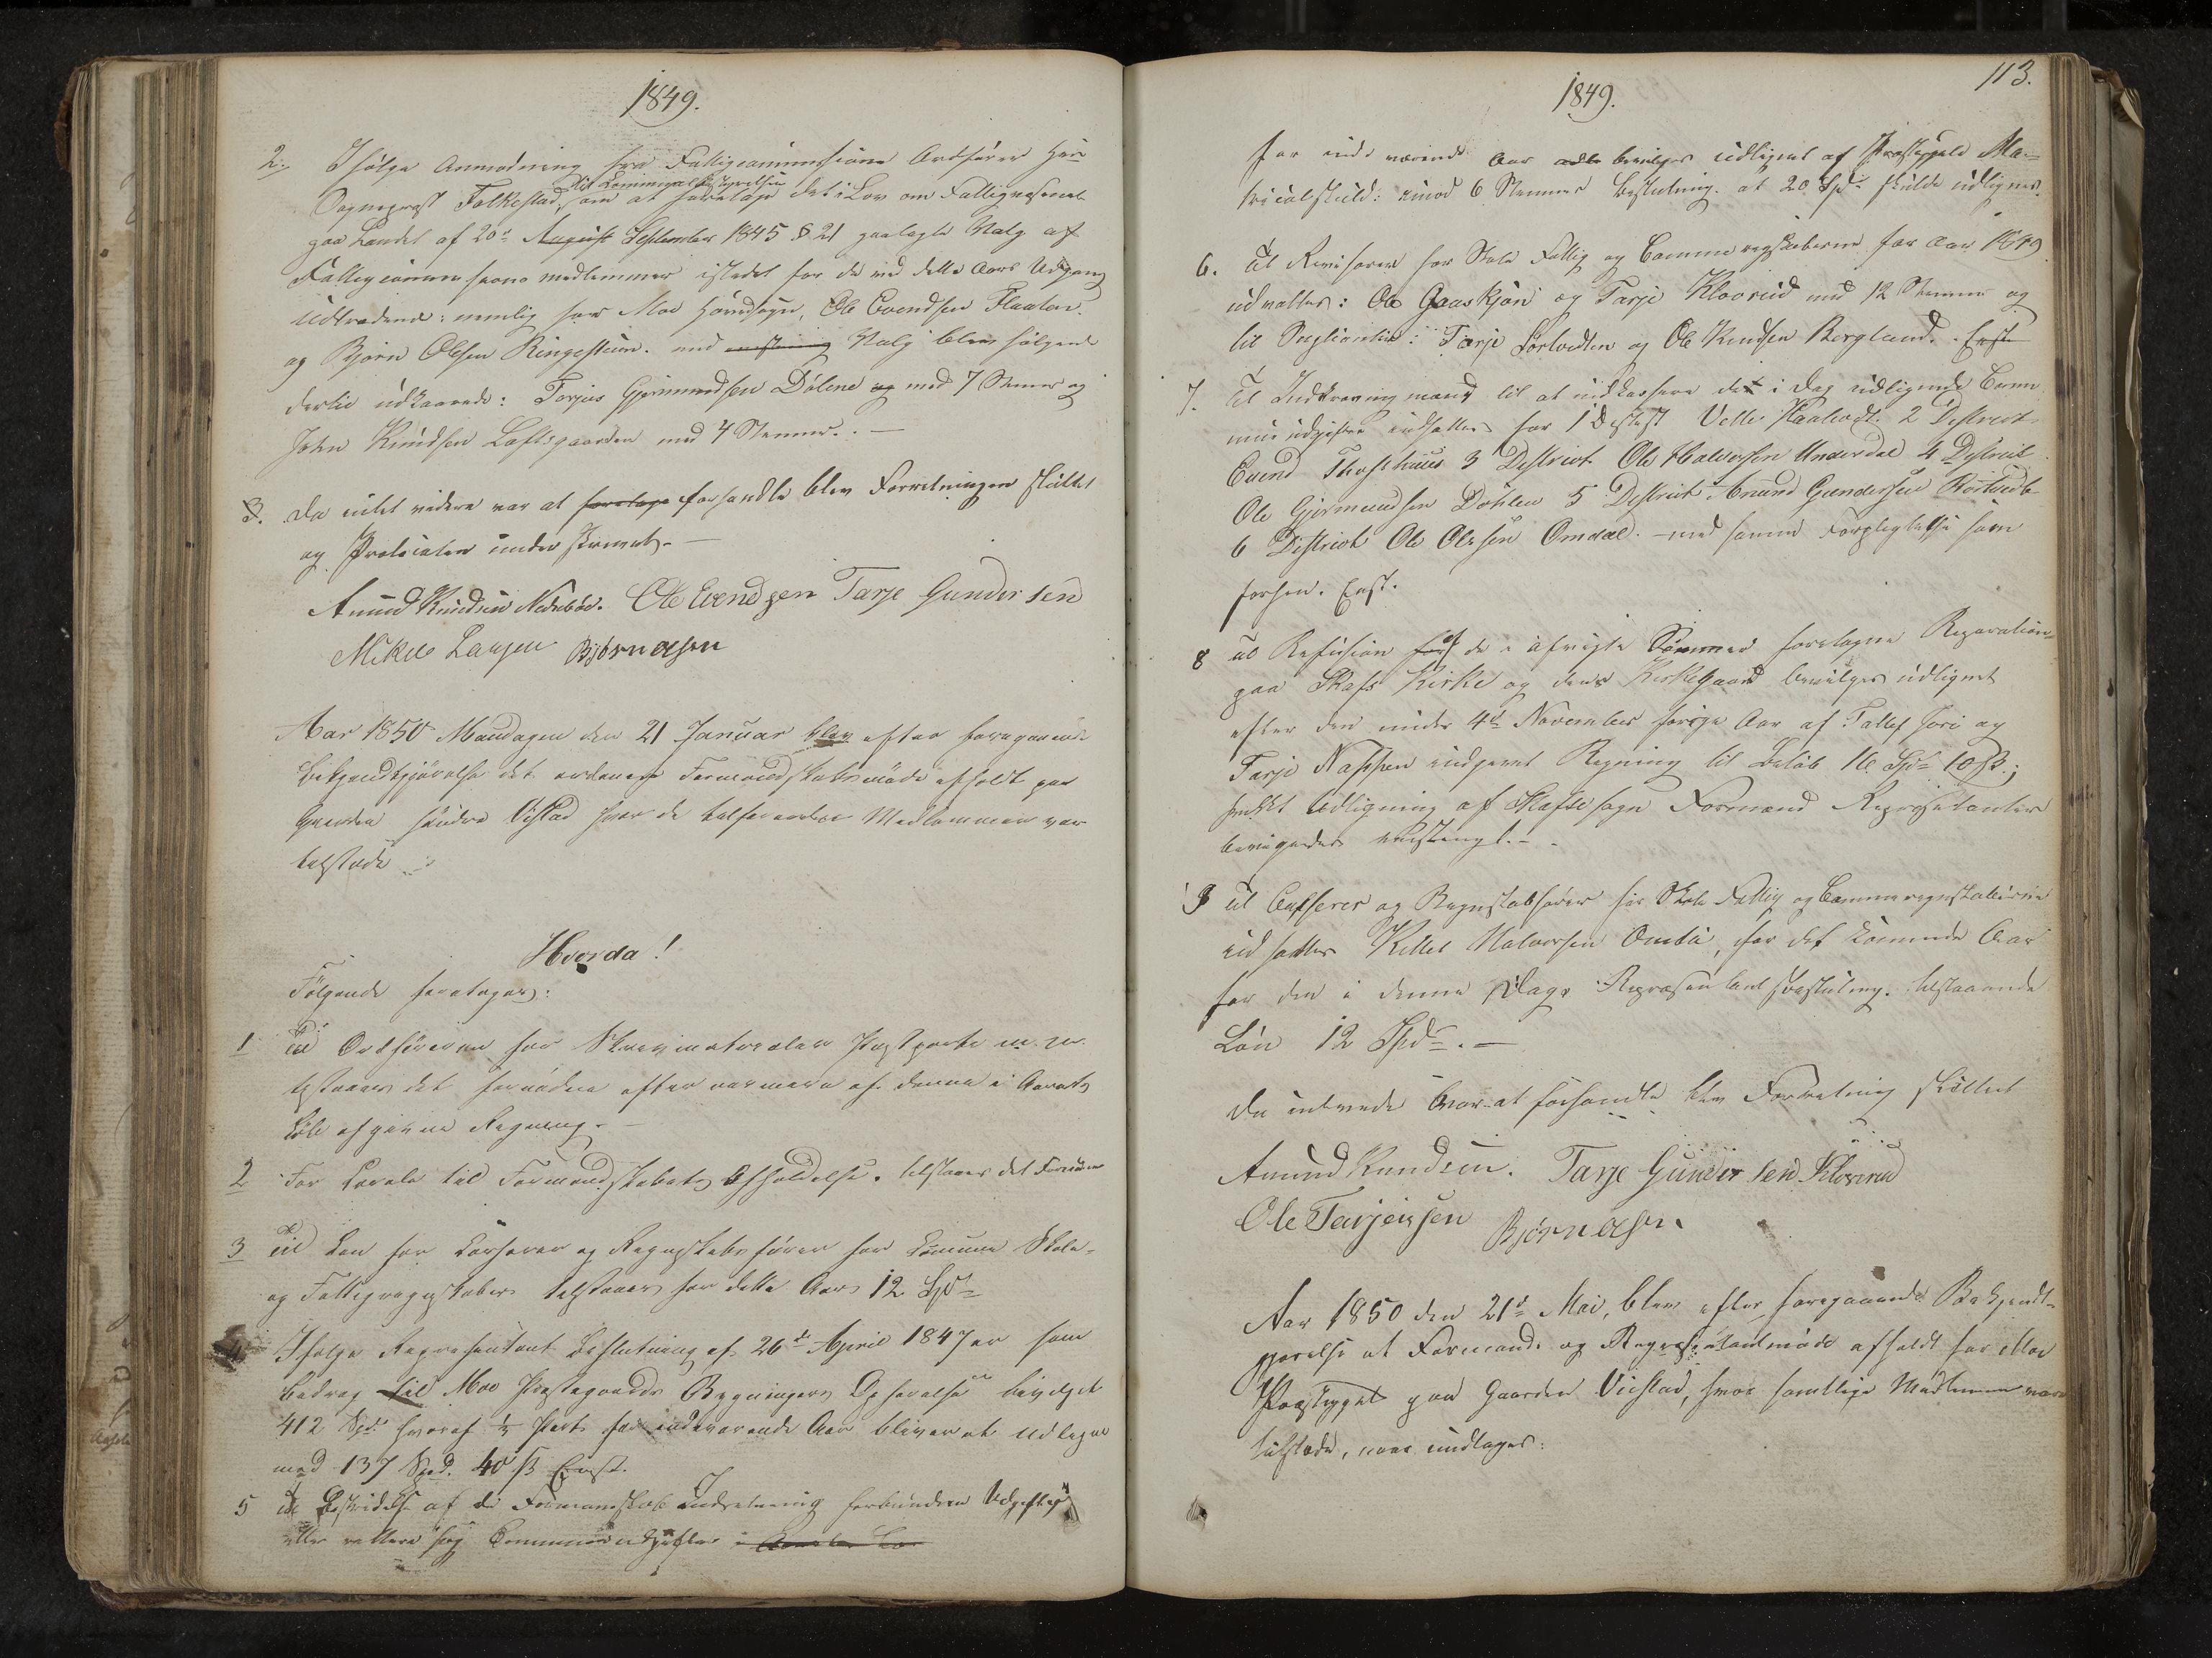 1849.
2. Ifølge Anmodning fra Fattigcommissions Ordfører Herr
til Communalbestyrelsen
Sognepræst Falkestad, om at foretage det i Lov om Fattigvæsenet
paa Landet af 20de August September 1845 § 21 paalagte Valg af
Fattigcommissions medlemmer istedet for de ved dette Aars Udgang
udtrædende: nemlig for Moe Hovedsogn, Ole Evendsen Flaaten.
og Bjørn Olsen Ringesteim. med Valg blev følgende
dertil udkaarede: Torjus Gjermundsen Dølene og med 7 Stemmer og
John Knudsen Loftsgaarden med 4 Stemmer. —
3. Da intet videre var at foretage forhandle blev Forretningen sluttet
og Protocolen underskrevet. —
Amund Knudsen Nedrebøe. Ole Evendsen Tarje Gundersen
Mikel Larsen Bjørn Olsen
Aar 1850 Mandagen den 21 Januar blev efter foregaaende
Bekjendtgjørelse det ordenære Formandskabsmøde afholdt paa
Gaarden søndre Vistad hvor de Medlemmer var
tilstæde
Hvorda!
Følgende foretages:
1 Til Ordføreren for Skrivmaterialer Postporto m. m.
tilstaaes det fornødne efter nærmere af denne i Aarets
Løb afgivne Regning. —
2 For Locale til Formandskabets Afholdelse. tilstaaes det Fornødne
3 Til Løn for Casserer og Regnskabsfører for Commune Skole-
og Fattigregnskaber tilstaaes for dette Aar 12 Spd
4 Ifølge Representant Beslutning af 26de April 1847 er som
Bidrag til Moe Præstegaards Bygningers Opførelse bevilget
412 Spd. hvoraf ⅓ Part for indeværende Aar bliver at udligne
med 137 Spd. 40 ß Enst.
5 Til Bestridelse af de Formandskabs Indretning forbundne Udgifter
eller Communeudgifter i
1849.
113.
for inde værende Aar bevilges udlignet af Præstegjeld Ma-
triculskuld: imod 6 Stemmers Beslutning. at 20 Spd skulde udlignes.
6. Til Revisorer for Skole Fattig og Commune regskaberne for Aar 1849
udvaltes: Ole Gaaskjøn og Tarje Kloorud med 12 Stemmer og
til Suplianter: Tarje Lortvedten og Ole Knudsen Bergland. Enst
7. Til Indkrævningmænd til at indkassere det i Dag udlignede Comm
mune udgifter indsattes for 1 District Velle Haatvedt. 2 District
Evend Skafsthuus 3 District Ole Halvorsen Underdal 4 District
Ole Gjermundsen Dohlen 5 District Anund Gundersen Rostvedt
6 District Ole Olesen Omdal. — med samme Forpligtelse som
forhen. Enst.
8 Til Refusion for af de i afvigte Sommer foretagne Reparation-
paa Skafs Kirke og dens Kirkegaard bevilges udlignet
efter den under 4de November forrige Aar af Tallef Jori og
Tarje Næssen indgivet Regning til Beløb 16 Spd 10 ß;
Udligning af Skafse sogn Formænd Repræsentanter
bevirgedes enstemgt. —
9 Til Casserer og Regnskabsfører for Skole Fattig og Communeregnskaberne
indsattes Kittel Halvorsen Omdal, for det kommende Aar
for den i denne Dags Repræsentantsbeslutning. tilstaaende
Løn 12 Spd. —
Da intvidere var at forhandle blev Forretning sluttet
Amund Knudsen. Tarje Gundersen Kloorud
Ole Tarjeisen Bjørn Olsen
Aar 1850 den 21de Mai, blev efter foregaaende Bekjendt-
gjørelse et Formands og Repræsentantmøde afholdt for Moe
Præstegjel paa Gaarden Vistad, hvor samtlige Medlemmer vare
tilstæde, vare undtages: